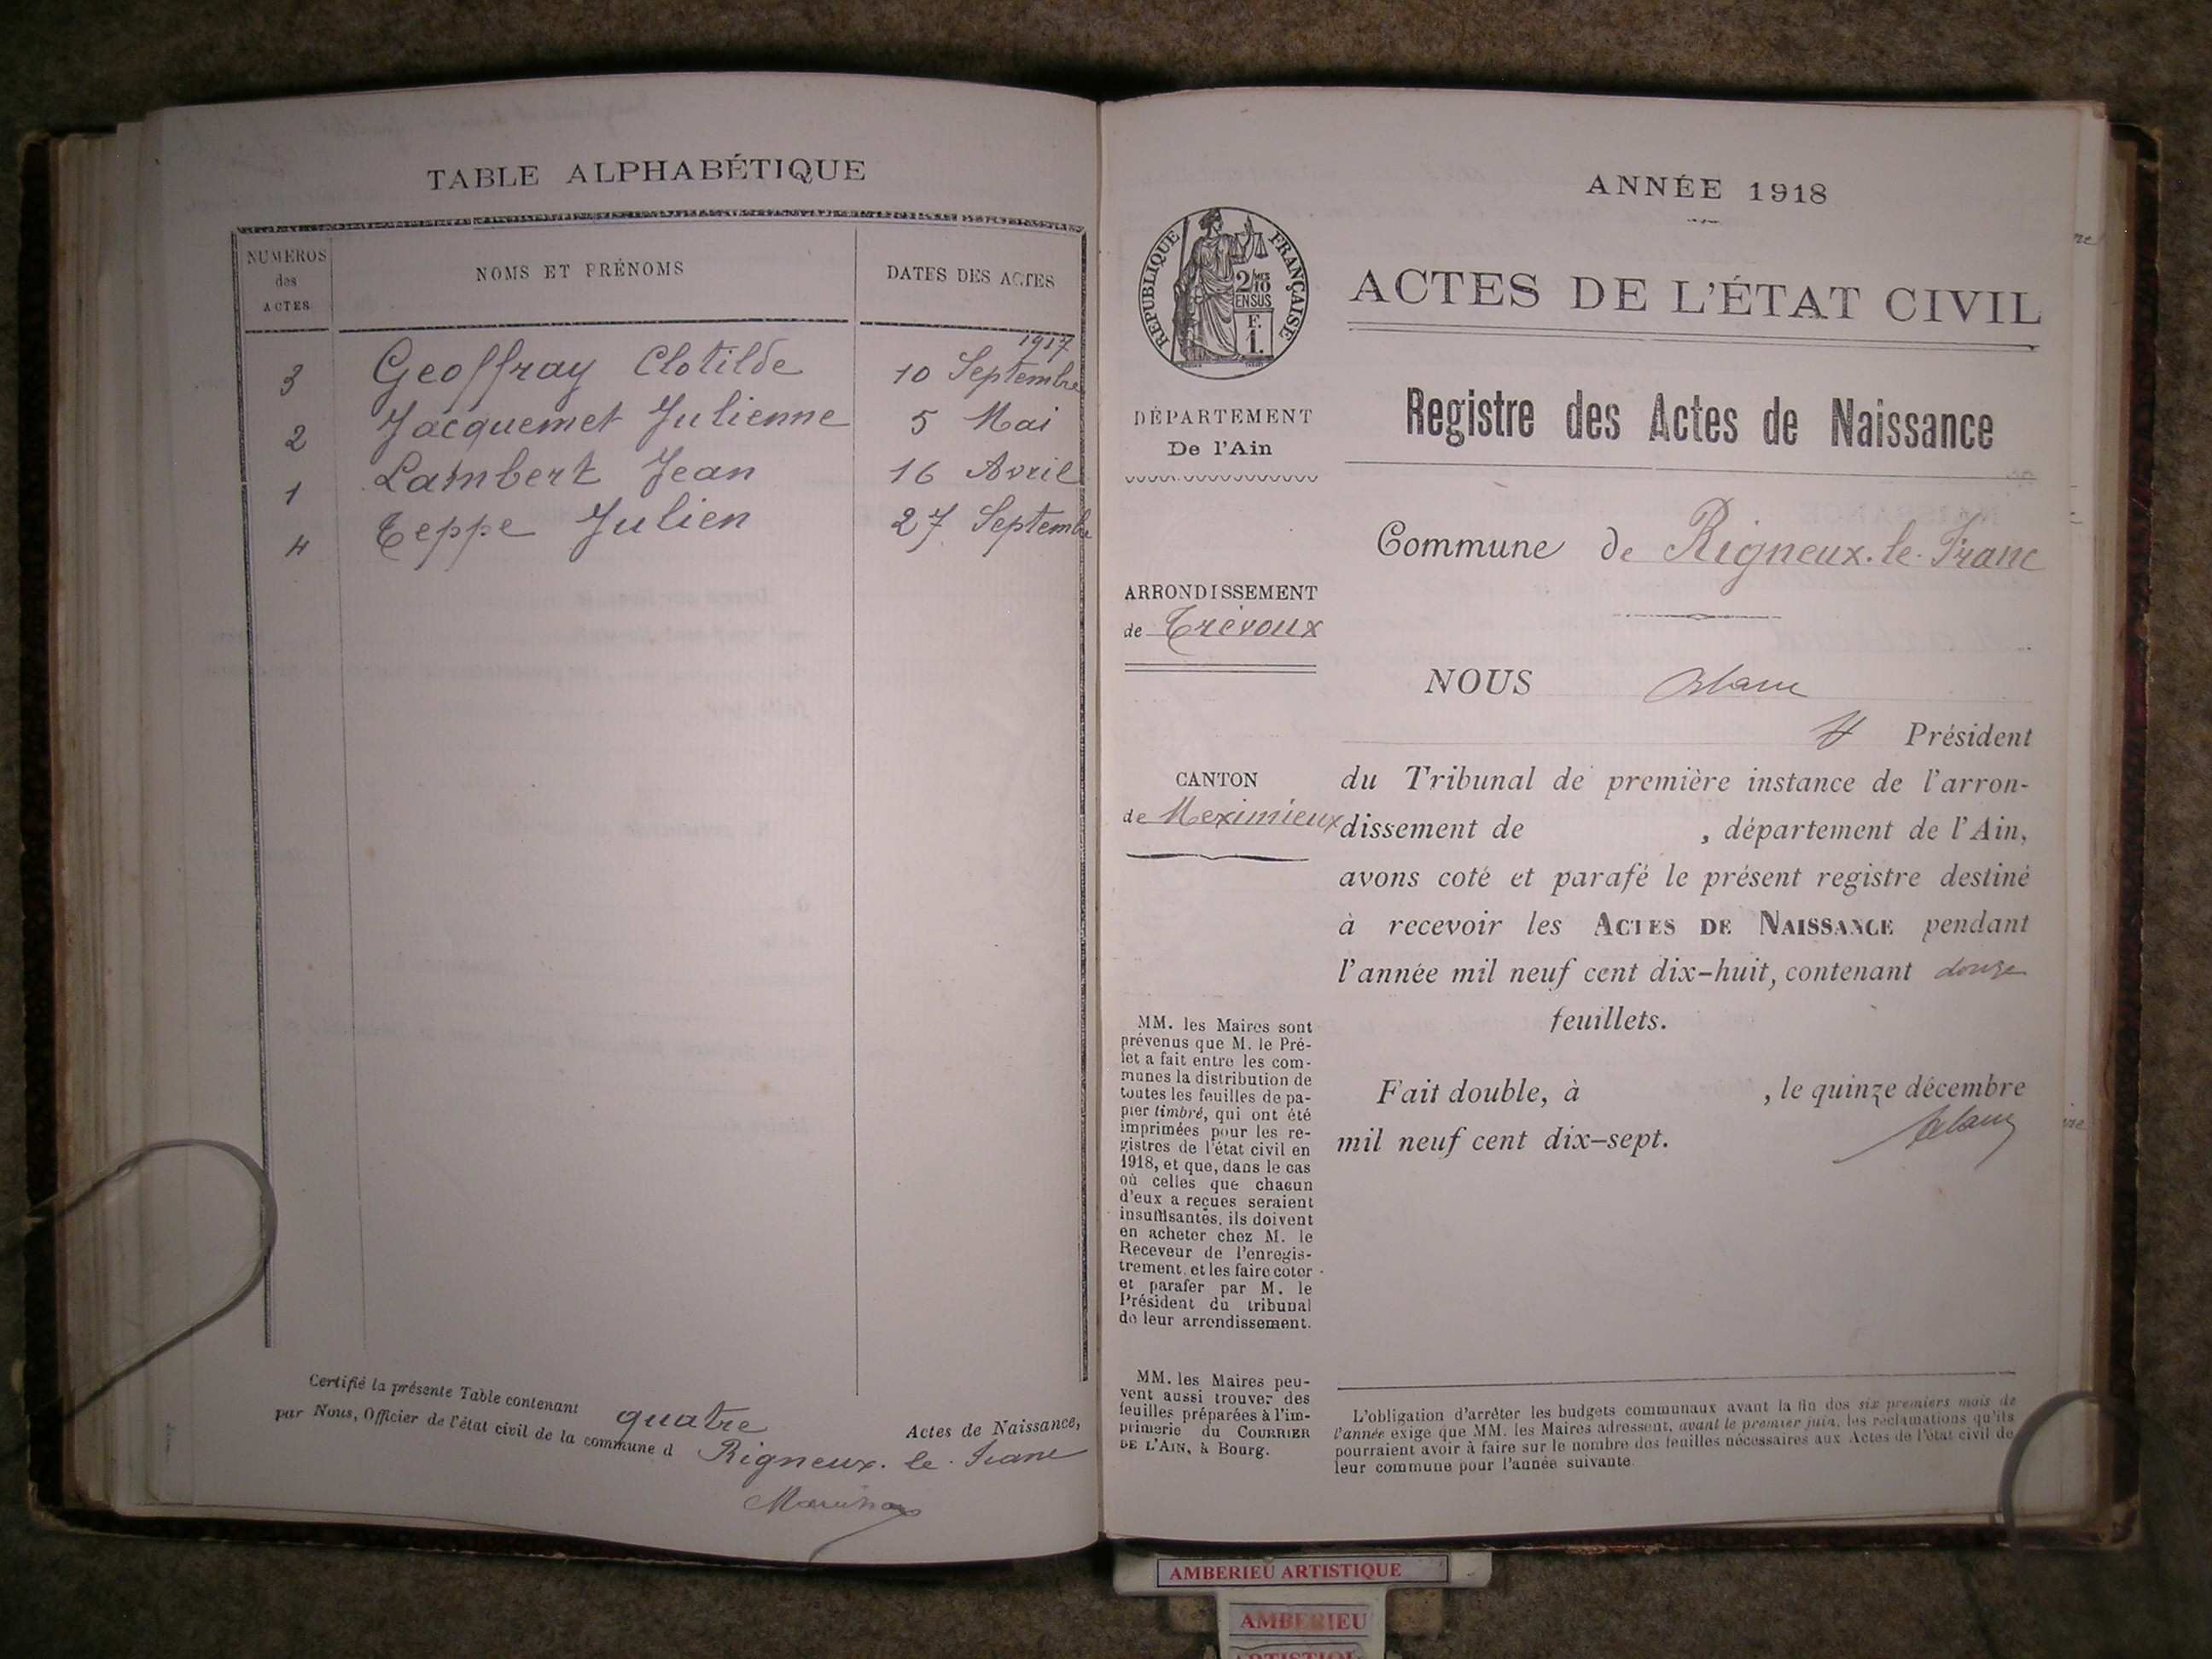 TABLE ALPHABÉTIQUE
NUMEROS
des
ACTES
NOMS ET PRÉNOMS
DATES DES ACTES
1917
3 Geoffray Clotilde 10 Septembre
2 Jacquemet Julienne 5 Mai
1 Lambert Jean 16 Avril
4 Teppe Julien 27 Septembre
Certifié la présente Table contenant quatre Actes de Naissance,
par Nous, Officier de l'état civil de la commune d Rigneux-le-Franc
ANNÉE 1918
RÉPUBLIQUE FRANÇAISE
2/10 MES
EN SUS
F.
1.
DÉPARTEMENT
De l'Ain
ARRONDISSEMENT
de Trévoux
CANTON
de Meximieux
MM. les Maires sont
prévenus que M. le Pré-
fet a fait entre les com-
munes la distribution de
toutes les feuilles de pa-
pier timbré, qui ont été
imprimées pour les re-
gistres de l'état civil en
1918, et que, dans le cas
où celles que chacun
d'eux a reçues seraient
insuffisantes, ils doivent
en acheter chez M. le
Receveur de l'enregis-
trement, et les faire coter
et parafer par M. le
Président du tribunal
de leur arrondissement.
MM. les Maires peu-
vent aussi trouver des
feuilles préparées à l'im-
primerie du COURRIER
DE L'AIN, à Bourg.
ACTES DE L'ÉTAT CIVIL
Registre des Actes de Naissance
Commune de Rigneux-le-Franc
NOUS
Président
du Tribunal de première instance de l'arron-
dissement de , département de l'Ain,
avons coté et parafé le présent registre destiné
à recevoir les ACTES DE NAISSANCE pendant
l'année mil neuf cent dix-huit, contenant douze
feuillets.
Fait double, à , le quinze décembre
mil neuf cent dix-sept.
L'obligation d'arrêter les budgets communaux avant la fin des six premiers mois de
l'année exige que MM. les Maires adressent, avant le premier juin, les réclamations qu'ils
pourraient avoir à faire sur le nombre des feuilles nécessaires aux Actes de l'état civil de
leur commune pour l'année suivante.
AMBERIEU ARTISTIQUE
AMBERIEU
ARTISTIQUE